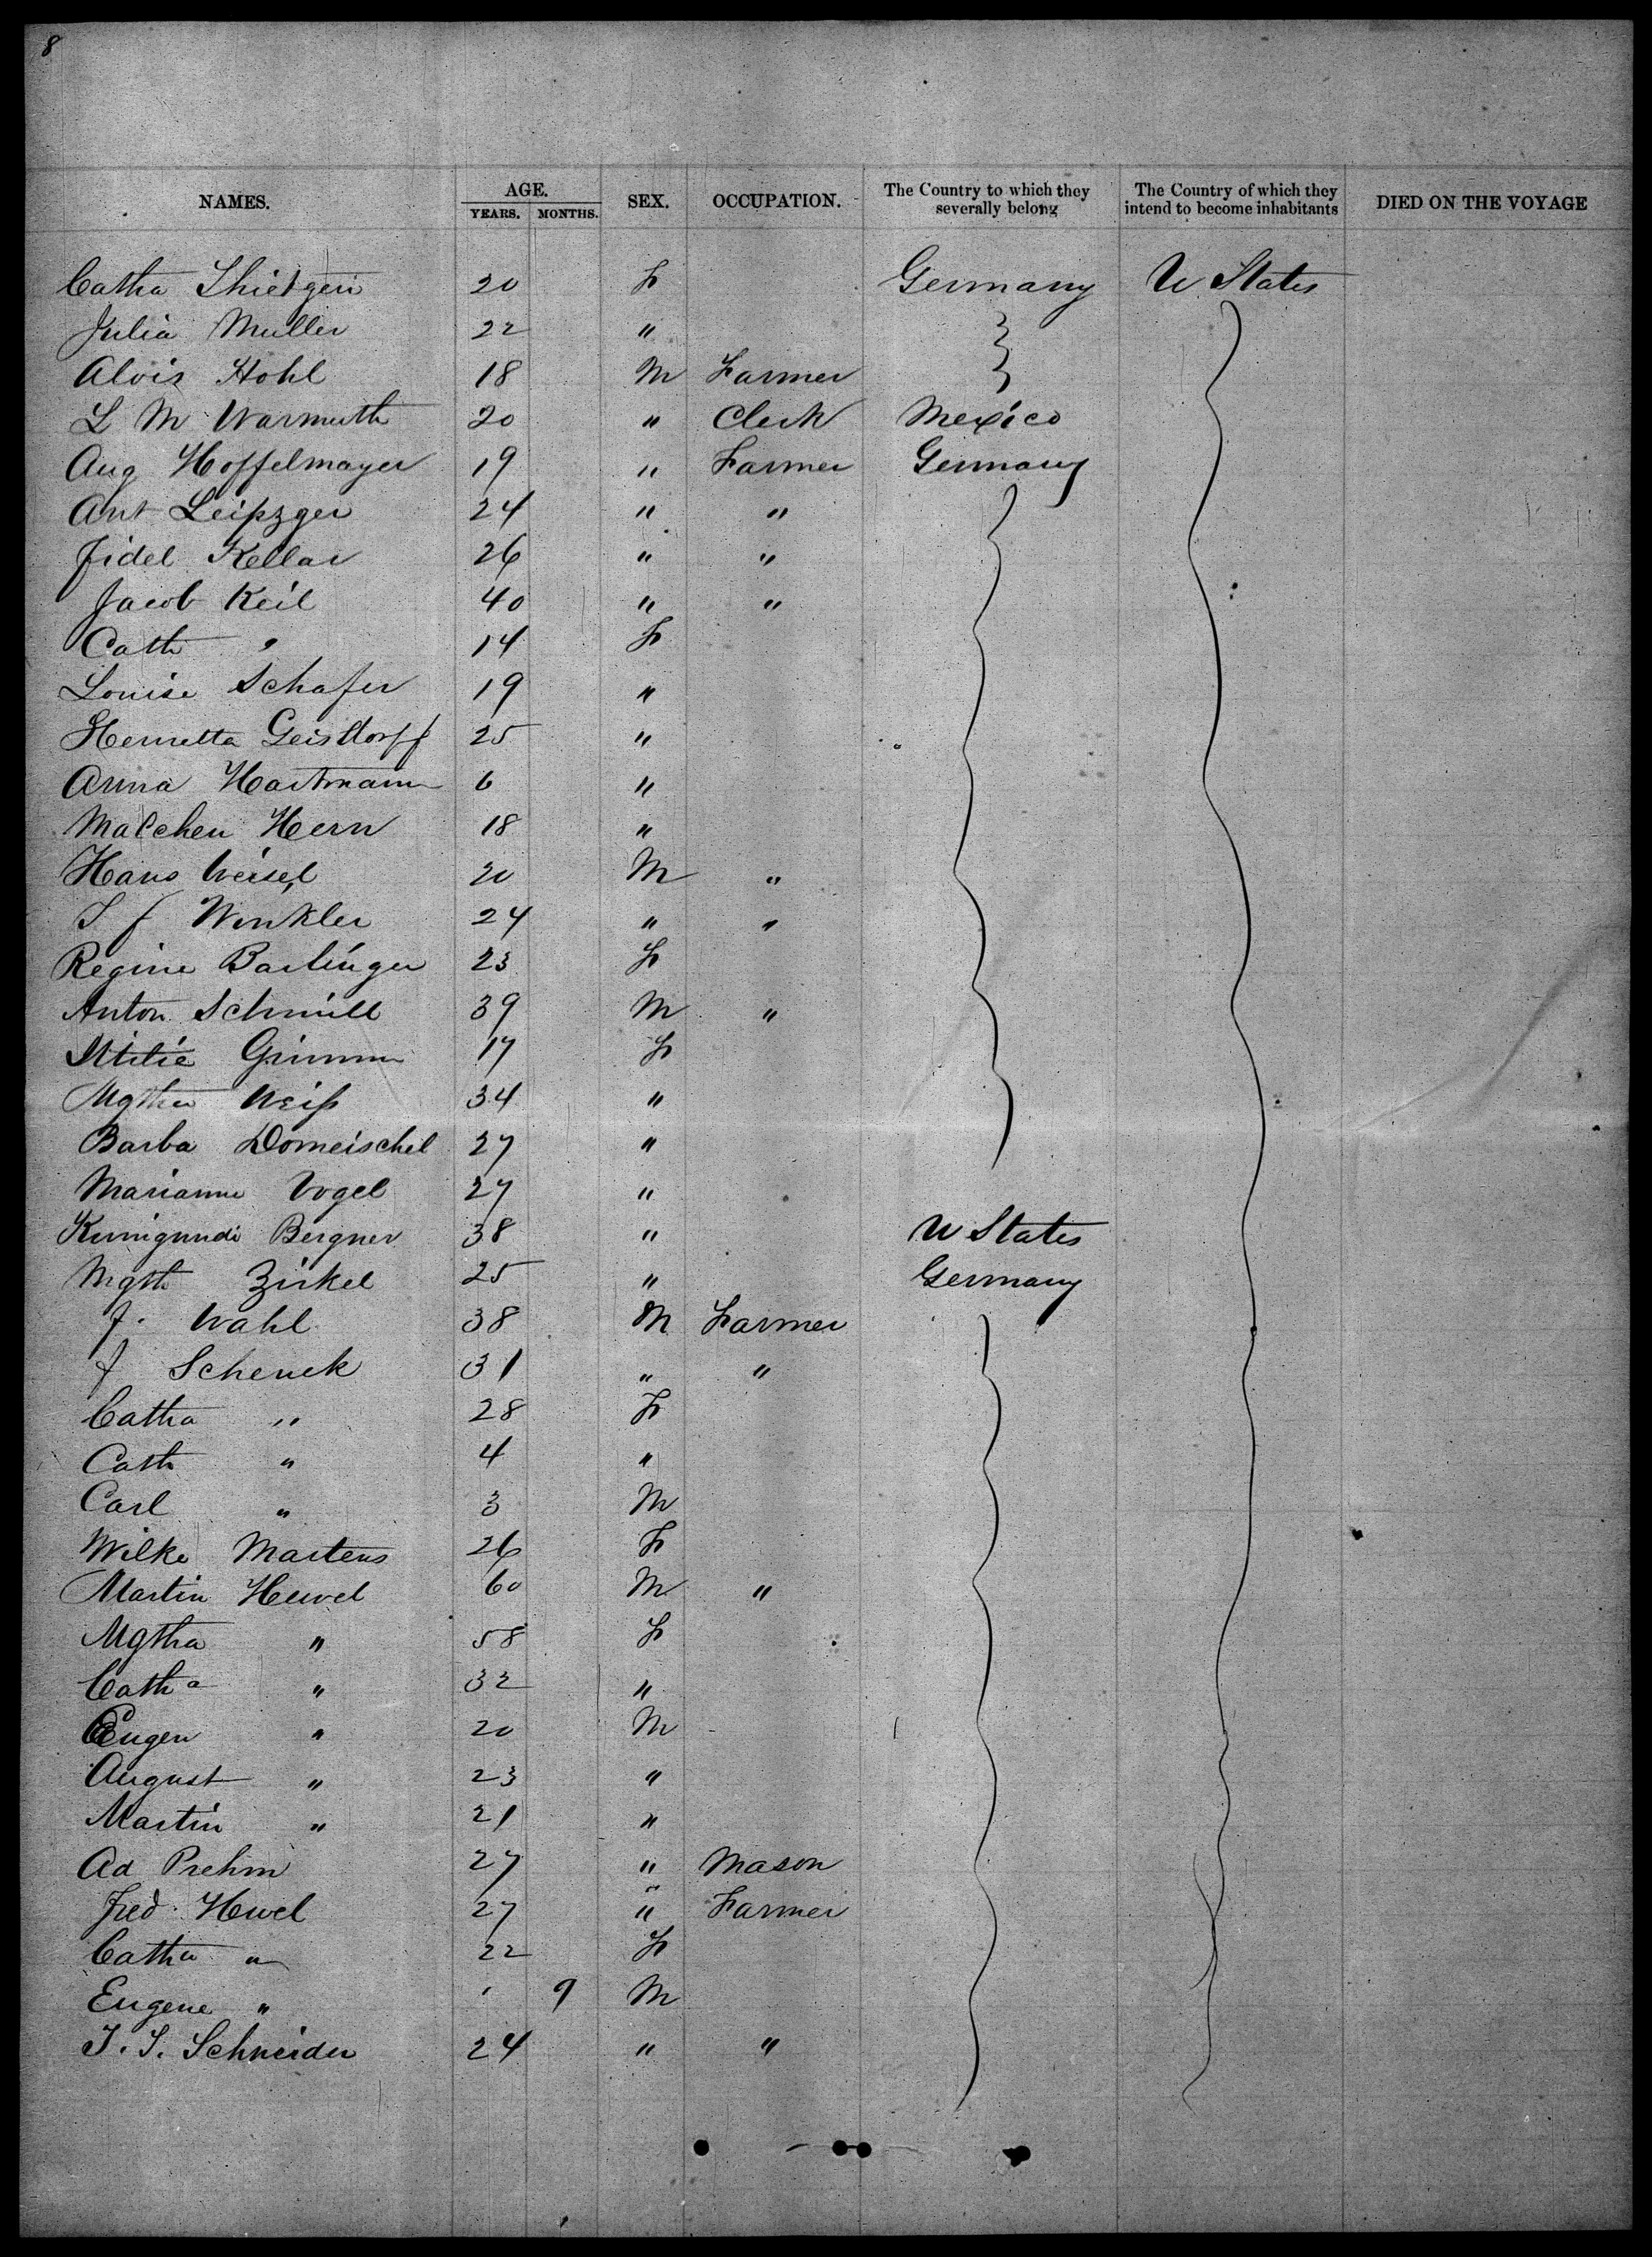 8
NAMES. AGE. SEX. OCCUPATION. The Country to which they severally belong The Country of which they intend to become inhabitants DIED ON THE VOYAGE
YEARS. MONTHS.
Catha 20 F Germany U States
Julia Muller 22 "
Alois Hohl 18 M Farmer
L M Warmuth 20 " Clerk Mexico
Aug Hoffelmayer 19 " Farmer Germany
Ant Leipzger 24 " "
Fidel Kellar 26 " "
Jacob Keil 40 " "
Cath " 14 F
Louise Schafer 19 "
Henretta Geisdorff 25 "
Anna Hartmann 6 "
Malchen Hern 18 "
Hans Weisel 20 M "
Winkler 24 " "
Regine Barlinger 23 F
Anton Schmill 39 M "
Grimm 17 F
Mgtha Weiß 34 "
Barba Domeischel 27 "
Marianne Vogel 27 "
Kunigundi Bergner 38 " U States
Mgth Zirkel 25 " Germany
J. Wahl 38 M Farmer
J Schenck 31 " "
Catha " 28 F
Cath " 4 "
Carl " 3 M
Wilke Martens 26 F
Martin Hewel 60 M "
Mgtha " 58 F
Catha " 32 "
Eugen " 20 M
August " 23 "
Martin " 21 "
Ad Prehm 27 " Mason
Fred Hewel 27 " Farmer
Catha " 22 F
Eugene " ' 9 M
Schneider 24 " "